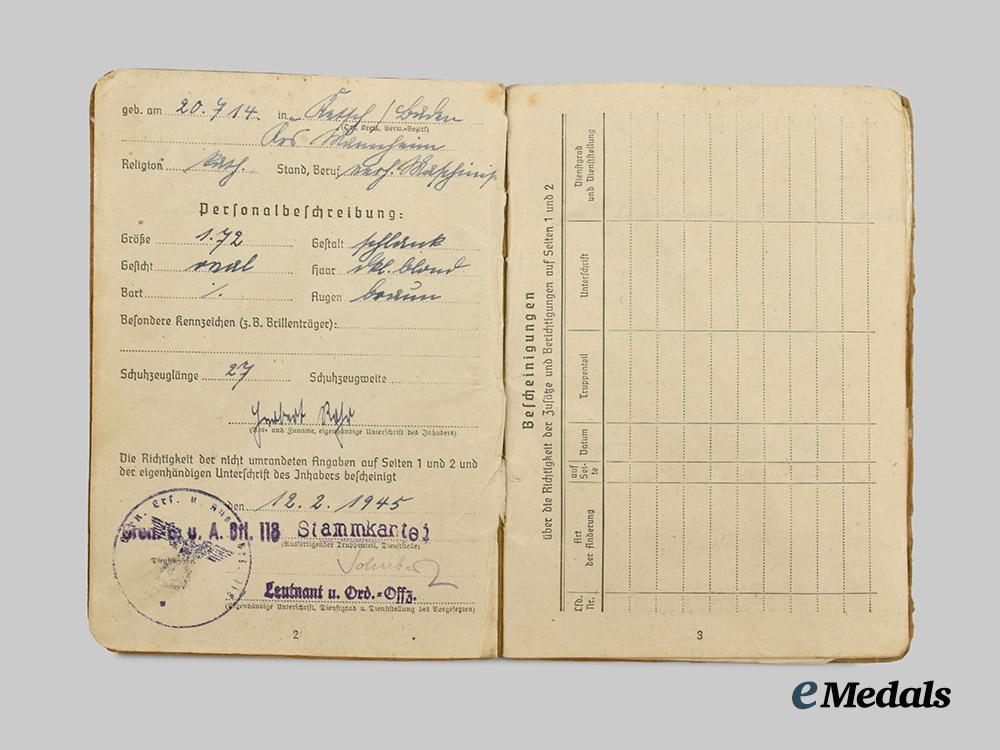 geb. am 20. 7 14. in Ketsch / Baden
(Ort, Kreis, Verw.-Bezirk)
Krs Mannheim
Religion kath. Stand, Beruf verh. Maschinist
Personalbeschreibung:
Größe 1.72 Gestalt schlank
Gesicht oval Haar dkl. blond
Bart ./. Augen braun
Besondere Kennzeichen (z. B. Brillenträger):
Schuhzeuglänge 27 Schuhzeugweite
Herbert
(Vor- und Zuname, eigenhändige Unterschrift des Inhabers)
Die Richtigkeit der nicht umrandeten Angaben auf Seiten 1 und 2 und
der eigenhändigen Unterschrift des Inhabers bescheinigt
den 12. 2. 1945
Gren. E. u. A. Btl. 118 Stammkartei
(Ausfertigender Truppenteil, Dienststelle)
Leutnant u. Ord.-Offz.
(Eigenhändige Unterschrift, Dienstgrad u. Dienststellung des Vorgesetzten)
2
Bescheinigungen
über die Richtigkeit der Zusätze und Berichtigungen auf Seiten 1 und 2
Lfd. Nr.
Art der Änderung
auf Sei-te
Datum
Truppenteil
Unterschrift
Dienstgrad und Dienststellung
3
eMedals